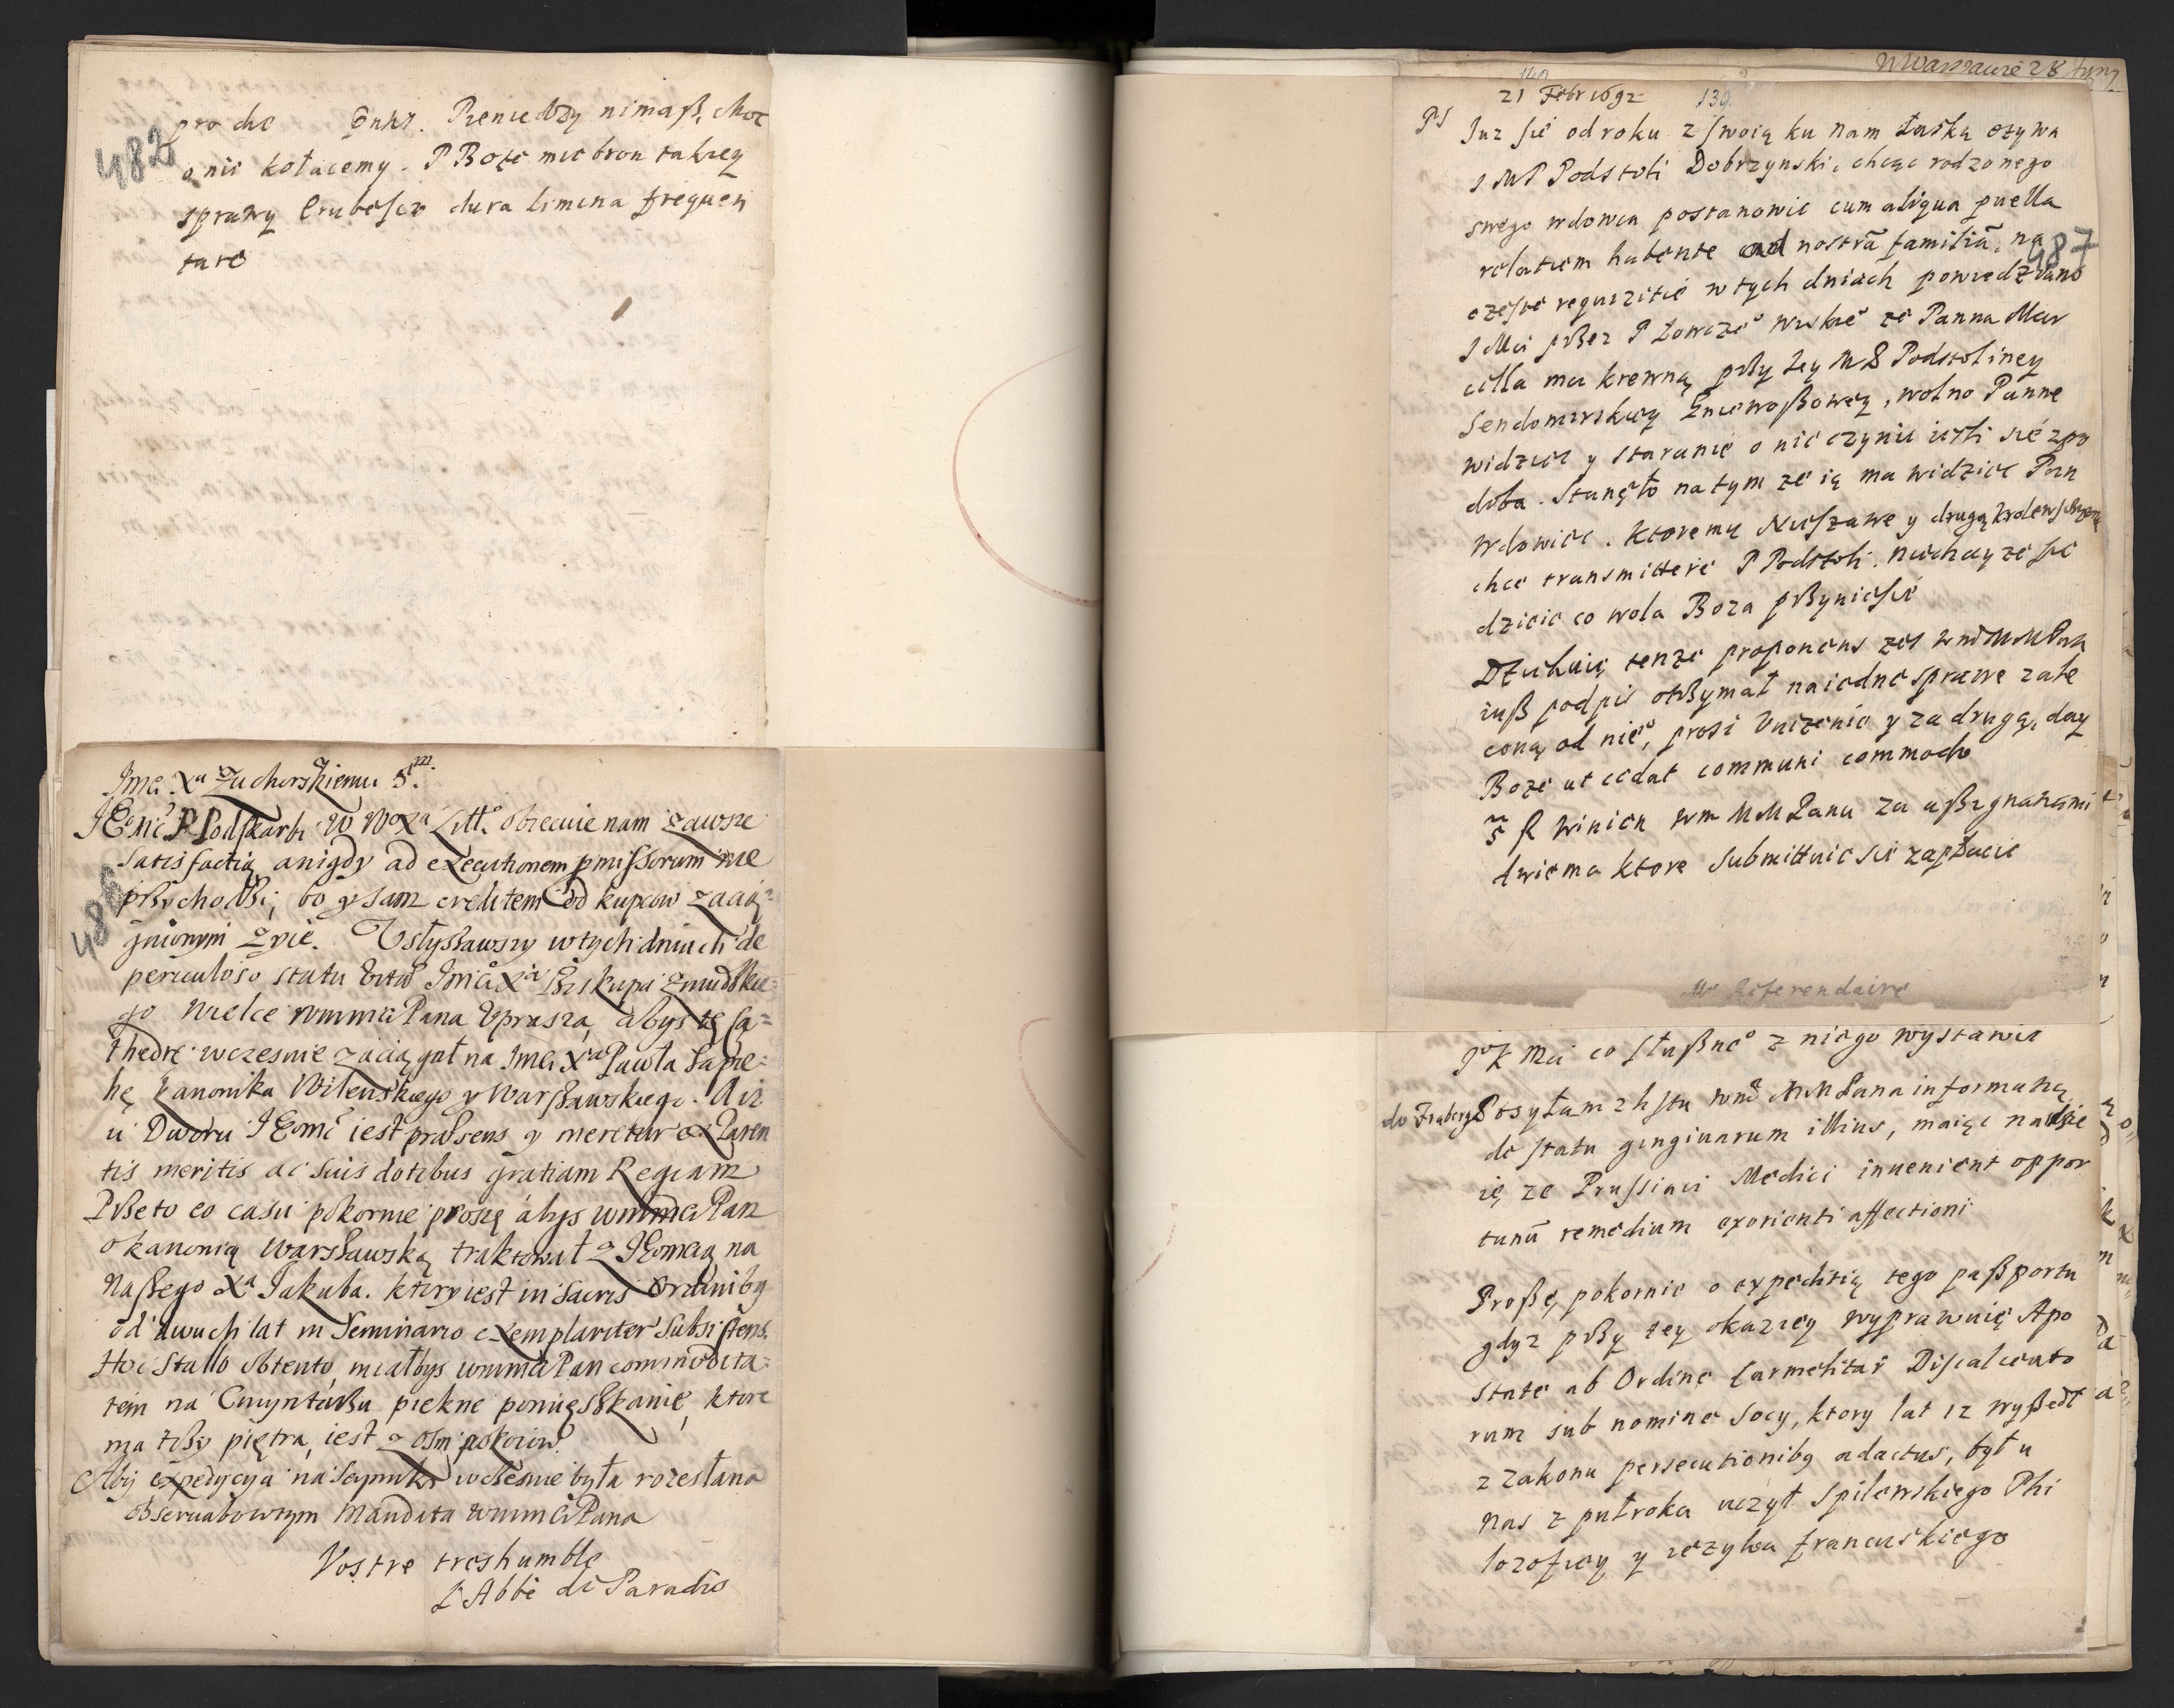 482
pro die Pieniedzy nimaß, choc
o nie kołacemy. P Boże mie bron takiey
sprawy Erubesco dura limina frequen
tare
Jmci Xu Zuchorskiemu
486
JEMć P Podskarbi W WoXa Litt. obiecuie nam zawsze
Satisfactią, a nigdy ad executionem pmissorum nie
pßychodßi; bo y sam creditem od kupcow zacią=
gnionym zyie. Usłyßawszy w tych dniach de
periculoso statu vitæ Jmci Xa Biskupa Zmudßkie=
go wielce wmmci Pana Upraszą, abys tę Ca=
thedrę wczesnie zaciągał na Jmci Xa Pawła Sapie=
hę kanonika Wilenskiego y Warßawskiego. A iz
u Dworu JEomć iest præsens y meretur ex Paren
tis meritis ac suis dotibus gratiam Regiam
Pßeto eo casu pokornie proszę abys wmmci Pan
o kanonią Warsßawską traktował z JEomcią na
naßego Xa Jakuba. ktory iest in Sacris Ordinibq
od dwuch lat in Seminario exemplariter Subsistens.
Hoc Stallo obtento, miałbys wmmci Pan commodita=
tem na Cmyntaßu piekne pomięßkanie, ktore
ma tßy piętra, iest z osm pokoiow.
Aby expedycya na Seymiki wcßesnie była rozesłana
obserwabowtym Mandata wmmci Pana
Vostre treshumble
L'Abbé de Paradis
W Warszawie 28
21 Febr 1692
139
PS
Juz sie od roku z swoią ku nam Łaską ozywa
J MP Podstoli Dobrzynski, chcąc rodzonego
swego wdowca postanowic cum aliqua puella
relatiem habente ad nostrã familiã, na
487
czeste requizitie w tych dniach powiedziano
J Mci pßez P Łowczo wiskie ze Panna Mar
cella ma krewną pßy Jey MP Podstoliney
Sendomirskiey Zniewoßowey, wolno Panne
widziec y staranie o nie czynic iesli sie zpo
doba. Stanęło na tym ze ią ma widziec Pan
wdowiec. ktoremu Nieszawe y drugą krolewsczyzne
chce transmittere P Podstoli. niechay ze sie
dzieie co wola Boza pßyniesie
Dziekuię tenze proponens zes wmc MM Pan
iuß podpis otßymał na iedne sprawe zale
coną od nieo, prosi Unizenie y za drugą, day
Boze ut cedat communi commodo
R winien wm MM Panu za aßignatiami
dwiema ktore submittuie sie zapłacic
Mr Referendaire
JoK Mci co słußneo z niego wystawic
do Frabergo
Posyłam z listu wmć MM Pana informatią
de statu gingiuarum illius, maiąc nadzie
ię ze Prussiaci Medici inuenient oppor
tunũ remedium exorienti affectioni
Proßę pokornie o expeditią tego paßportu
gdyz pßy tey okaziey wyprawuię Apo
state ab Ordine Carmelitar Discalceato
rum sub nomine Socy, ktory lat 12 wyßedł
z zakonu persecutionibq adactus, był u
nas z pułroka uczył Spilewskiego Phi
lozofiey y iezyka francuskiego